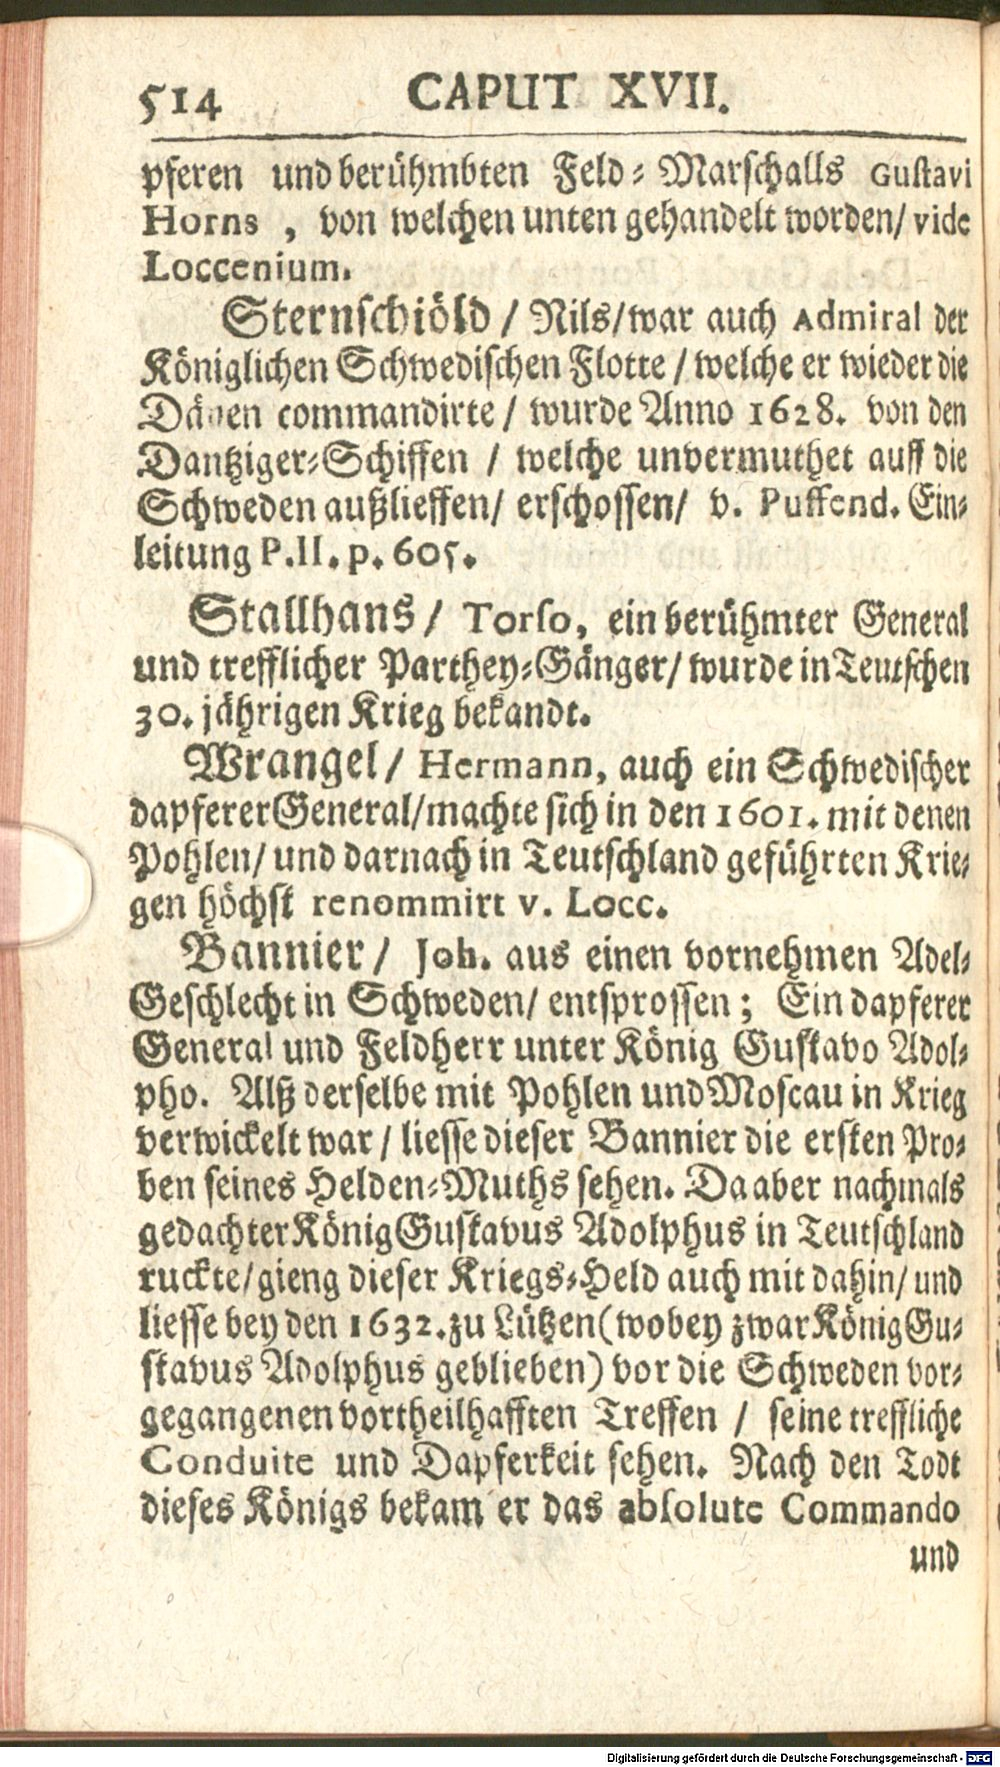 514 CAPUT XVII.
pferen und berühmbten Feld-Marschalls Gustavi
Horns, von welchen unten gehandelt worden/ vide
Loccenium.
Sternschiöld / Nils/war auch Admiral der
Königlichen Schwedischen Flotte / welche er wieder die
Dänen commandirte / wurde Anno 1628. von den
Dantziger-Schiffen / welche unvermuthet auff die
Schweden außlieffen/ erschossen/ v. Puffend. Ein-
leitung P.II. p. 605.
Stallhans / Torso, ein berühmter General
und trefflicher Parthey-Gänger/ wurde in Teutschen
30. jährigen Krieg bekandt.
Wrangel / Hermann, auch ein Schwedischer
dapferer General/machte sich in den 1601. mit denen
Pohlen/ und darnach in Teutschland geführten Krie-
gen höchst renommirt v. Locc.
Bannier / Joh. aus einen vornehmen Adel-
Geschlecht in Schweden/ entsprossen; Ein dapferer
General und Feldherr unter König Gustavo Adol-
pho. Alß derselbe mit Pohlen und Moscau in Krieg
verwickelt war / liesse dieser Bannier die ersten Pro-
ben seines Helden-Muths sehen. Da aber nachmals
gedachter König Gustavus Adolphus in Teutschland
ruckte/ gieng dieser Kriegs-Held auch mit dahin/ und
liesse bey den 1632. zu Lützen (wobey zwar König Gu-
stavus Adolphus geblieben) vor die Schweden vor-
gegangenen vortheilhafften Treffen / seine treffliche
Conduite und Dapferkeit sehen. Nach den Todt
dieses Königs bekam er das absolute Commando
und
Digitalisierung gefördert durch die Deutsche Forschungsgemeinschaft - DFG